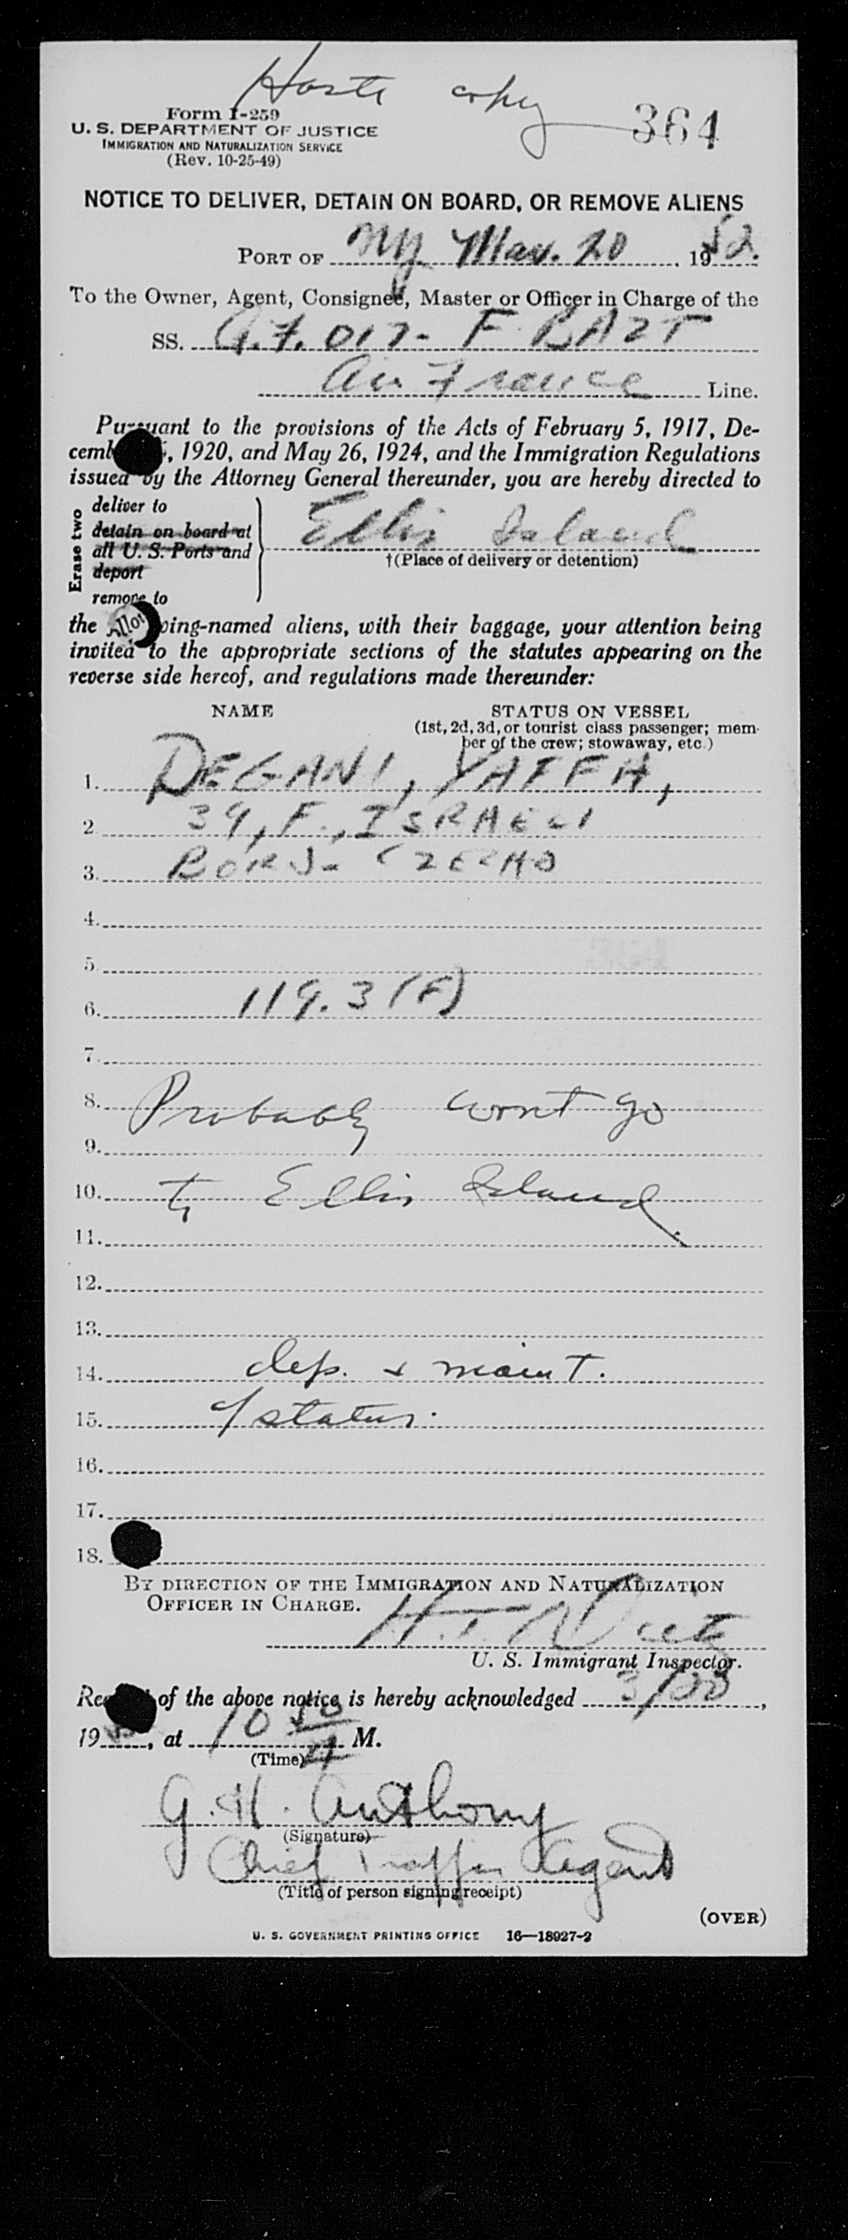 copy
364
Form I-259
U. S. DEPARTMENT OF JUSTICE
IMMIGRATION AND NATURALIZATION SERVICE
(Rev. 10-25-49)
NOTICE TO DELIVER, DETAIN ON BOARD, OR REMOVE ALIENS
PORT OF NY Mar. 20, 1952.
To the Owner, Agent, Consignee, Master or Officer in Charge of the
SS. A.F. 017- F BAZT
Air France Line.
Pursuant to the provisions of the Acts of February 5, 1917, De-
cemb 1920, and May 26, 1924, and the Immigration Regulations
issued by the Attorney General thereunder, you are hereby directed to
Erase two
deliver to
detain on board at
all U. S. Ports and
deport
remove to
Ellis Island
†(Place of delivery or detention)
the following-named aliens, with their baggage, your attention being
invited to the appropriate sections of the statutes appearing on the
reverse side hereof, and regulations made thereunder:
NAME STATUS ON VESSEL
(1st, 2d, 3d, or tourist class passenger; mem-
ber of the crew; stowaway, etc.)
1. DEGANI, YAFFA,
2. 39, F., ISRAELI
3. BORN- CZECHO
4.
5.
6. 119.3(F)
7.
8. Probably wont go
9.
10. to Ellis Island.
11.
12.
13.
14. dep. & maint.
15. of status.
16.
17.
18.
BY DIRECTION OF THE IMMIGRATION AND NATURALIZATION
OFFICER IN CHARGE.
U. S. Immigrant Inspector.
Receipt of the above notice is hereby acknowledged 3/20,
1952, at 10 50 A M.
(Time)
G. H. Anthony
(Signature)
Chief Traffic Agent
(Title of person signing receipt)
(OVER)
U. S. GOVERNMENT PRINTING OFFICE 16—18927-2